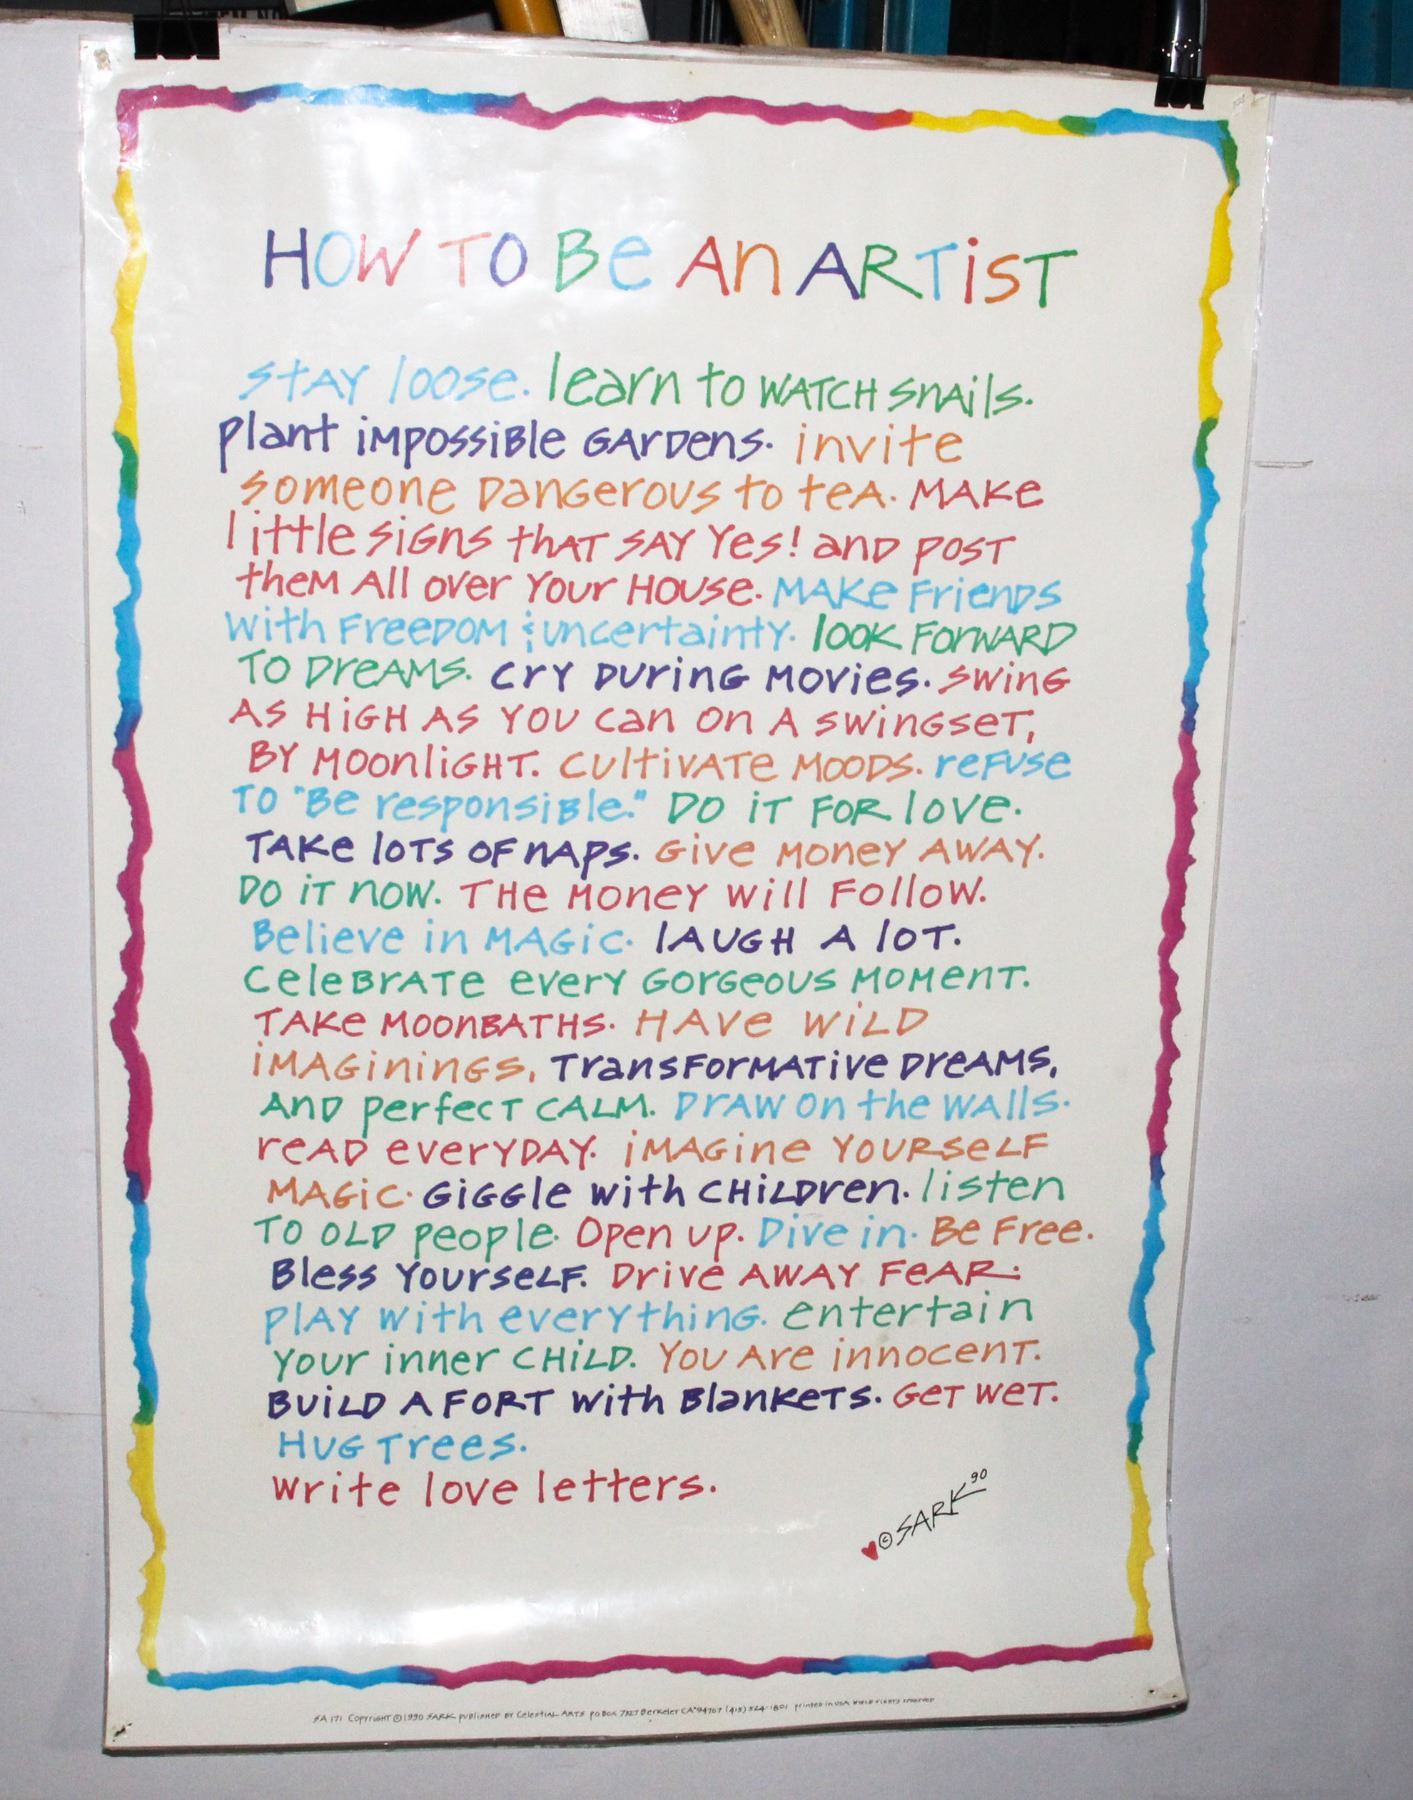 HOW TO BE AN ARTIST
STAY loose. learn to WATCH snails.
plant impossible gardens. invite
someone dangerous to tea. Make
little signs that say Yes! and post
them all over your house. Make friends
with freedom & uncertainty. look forward
to dreams. Cry during movies. Swing
as high as you can on a swingset,
by moonlight. Cultivate moods. refuse
to "be responsible." Do it for love.
Take lots of naps. Give money away.
Do it now. The money will follow.
Believe in magic. laugh a lot.
Celebrate every gorgeous moment.
Take moonbaths. Have wild
imaginings, Transformative dreams,
And perfect calm. Draw on the walls.
read everyday. imagine yourself
magic. Giggle with children. listen
to old people. Open up. Dive in. Be free.
Bless yourself. Drive away fear.
Play with everything. entertain
your inner child. You are innocent.
Build a fort with blankets. Get wet.
Hug trees.
Write love letters.
© SARK 90
SA 171 Copyright © 1990 SARK published by Celestial Arts PO Box 7327 Berkeley CA 94707 (415) 524-1801 printed in USA rights reserved